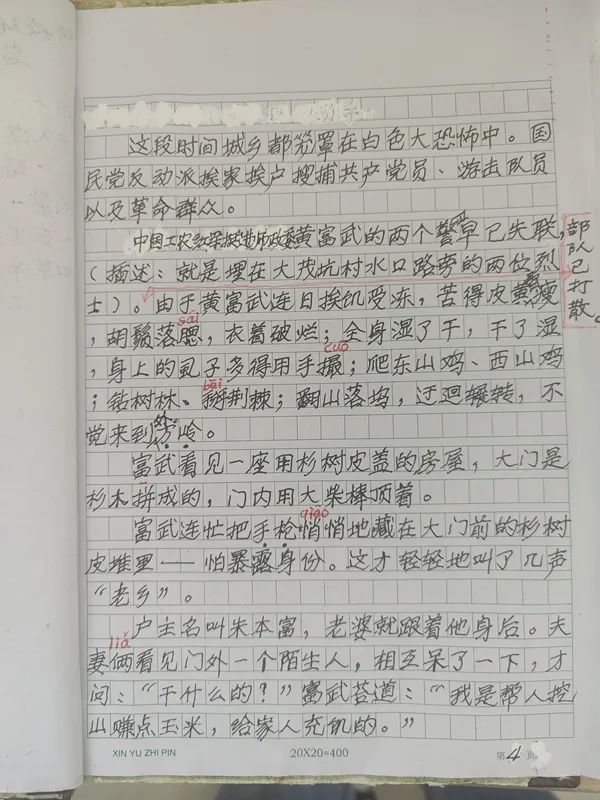 这段时间城乡都笼罩在白色大恐怖中。国
民党反动派挨家挨户搜捕共产党员、游击队员
以及革命群众。
中国工农红军 黄富武的两个警卫早已失联,
部队已打散。
(描述:就是埋在大茂坑村水口路旁的两位烈
士)。由于黄富武连日挨饥受冻,苦得皮黄寡瘦
sāi
,胡鬚落腮,衣着破烂;全身湿了干,干了湿
cuō
,身上的虱子多得用手撮;爬东山鸡、西山鸡
bāi
;钻树林、掰荆棘;翻山落坞,迂迴辗转,不
觉来到 岭。
富武看见一座用杉树皮盖的房屋,大门是
杉木拼成的,门内用大柴棒顶着。
qiāo
富武连忙把手枪悄悄地藏在大门前的杉树
皮堆里——怕暴露身份。这才轻轻地叫了几声
“老乡”。
户主名叫朱本富,老婆就跟着他身后。夫
liǎ
妻俩看见门外一个陌生人,相互呆了一下,才
问:“干什么的?”富武荅道:“我是帮人挖
山赚点玉米,给家人充饥的。”
XIN YU ZHI PIN
20X20=400
第4页